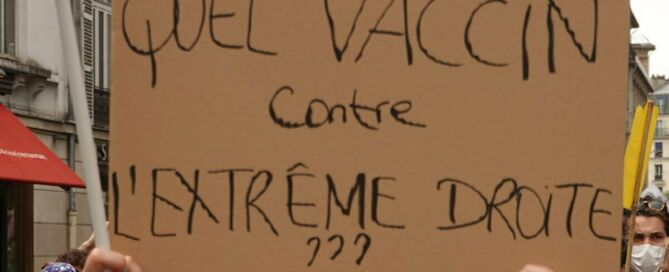 QUEL VACCIN
contre
L'EXTRÊME DROITE
???